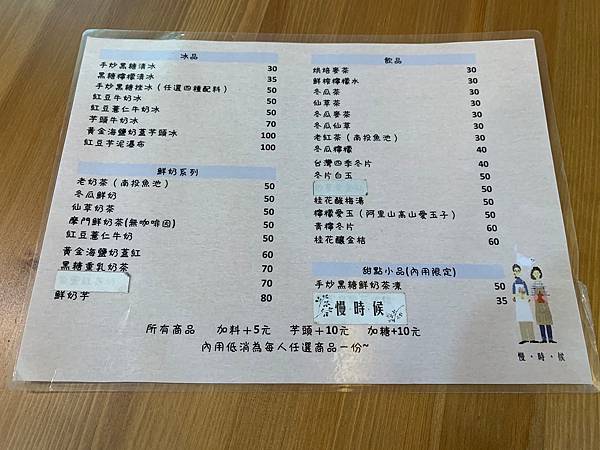 冰品
手炒黑糖清冰 30
黑糖檸檬清冰 35
手炒黑糖挫冰（任選四種配料） 50
紅豆牛奶冰 50
紅豆薏仁牛奶冰 50
芋頭牛奶冰 70
黃金海鹽奶蓋芋頭冰 100
紅豆芋泥瀑布 100
鮮奶系列
老奶茶（南投魚池） 50
冬瓜鮮奶 50
仙草奶茶 50
摩門鮮奶茶(無咖啡因) 50
紅豆薏仁牛奶 50
黃金海鹽奶蓋紅 60
黑糖重乳奶茶 70
70
鮮奶芋 80
飲品
烘焙麥茶 30
鮮榨檸檬水 30
冬瓜茶 30
仙草茶 30
冬瓜麥茶 30
冬瓜仙草 30
老紅茶（南投魚池） 30
冬瓜檸檬 40
台灣四季冬片 40
冬片白玉 50
50
桂花酸梅湯 50
檸檬愛玉（阿里山高山愛玉子） 50
青檸冬片 60
桂花釀金桔 60
甜點小品(內用限定)
手炒黑糖鮮奶茶凍 50
慢時候 35
所有商品 加料＋5元 芋頭＋10元 加糖+10元
內用低消為每人任選商品一份~
慢・時・候